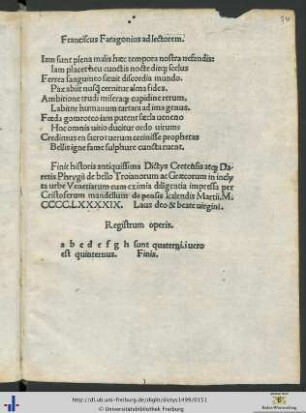 Franciscus Faragonius ad lectorem.
Iam sunt plena malis hæc tempora nostra nefandis:
Iam placet heu cunctis nocte dieq; scelus
Ferrea sanguineo sæuit discordia mundo.
Pax abiit nusq̃ cernitur alma fides.
Ambitione trudi miseraq; cupidine rerum.
Labitur humanum tartara ad ima genus.
Fœda gomorreo iam patent sæcla ueneno
Hoc omnis uitio ducitur ordo uirums
Credimus en sacros uerum cecinisse prophetas
Bellis igne fame sulphure cuncta ruent.
Finit historia antiquissima Dictys Cretensis atq; Da-
retis Phrygii de bello Troianorum ac Græcorum in incly
ta urbe Venetiarum cum eximia diligentia impressa per
Cristoferum mandellum de pensis kalendis Martii. M.
CCCC.LXXXXIX. Laus deo & beatæ uirgini.
Registrum operis.
a b c d e f g h sunt quaterni. i uero
est quinternus. Finis.
http://dl.ub.uni-freiburg.de/diglit/dictys1499/0151
© Universitätsbibliothek Freiburg
Baden-Württemberg